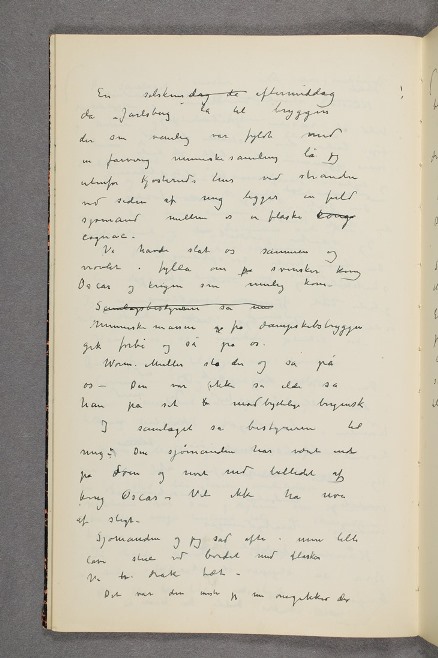 En solskinsdag de eftermiddag
da „Jarlsberg" lå til bryggen
der som vanlig var fyldt med
en farverig menneskesamling lå jeg
utenfor Kjøsteruds hus ved stranden
ved siden af mig ligger en fuld
sjømand mellem os en flaske konge
cognac.
Vi havde slåt os sammen og
i fylla om på svensker kong
Oscar og krigen som mulig kom
Samlagsbestyreren sa
menneske massen på dampskibsbryggen
gik forbi og så på os.
Worm. Müller sto der og så på
os – Den var ikke så ilde sa
han på sit modbydelige bergensk
I samlaget sa bestyreren til
mig: Den sjømanden har været inde
på og med billedet af
kong Oscar – Vil ikke ha noe
af sligt –
Sjømanden og jeg sad ofte i min lille
lave stue ved bordet med flasken
Vi drak tæt –
Det var den jeg omgikkes der